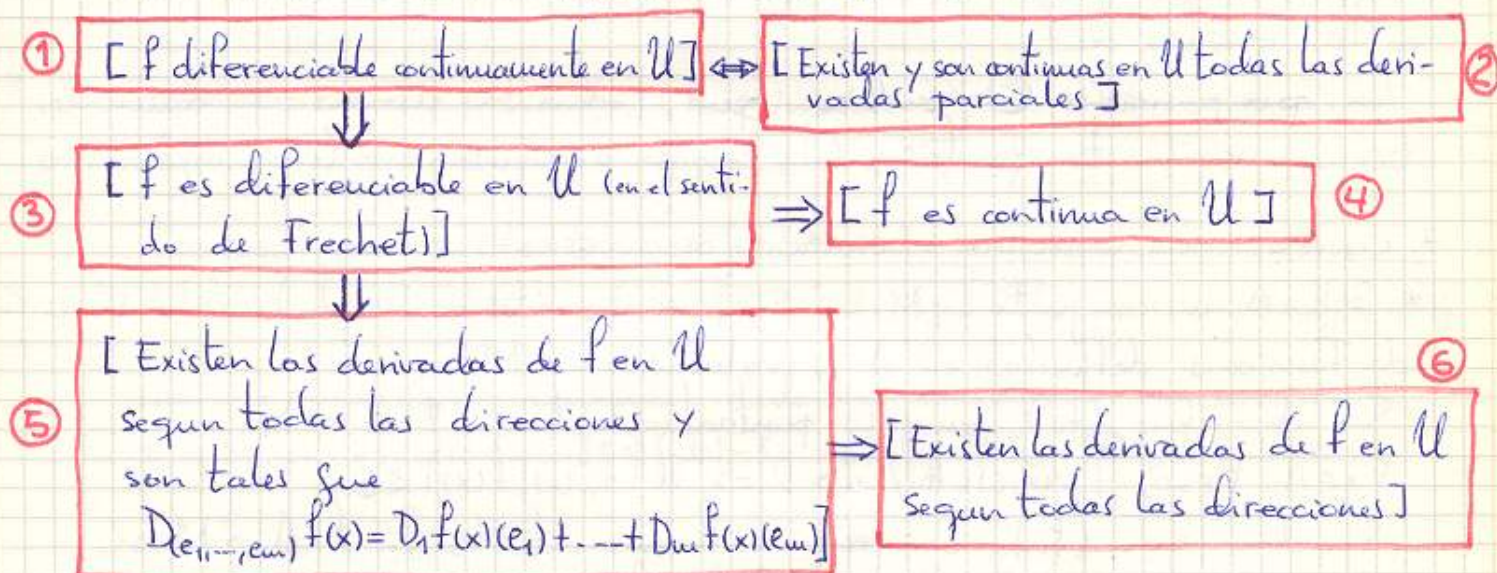 ① [f diferenciable continuamente en U] ⇔ [Existen y son continuas en U todas las deri-
vadas parciales] ②
⇓
③ [f es diferenciable en U (en el senti-
do de Frechet)] ⇒ [f es continua en U] ④
⇓
⑤ [Existen las derivadas de f en U
segun todas las direcciones y
son tales que
D(e₁,...,eₘ) f(x) = D₁f(x)(e₁) + .... + Dₘf(x)(eₘ)]
⇒ [Existen las derivadas de f en U
segun todas las direcciones] ⑥